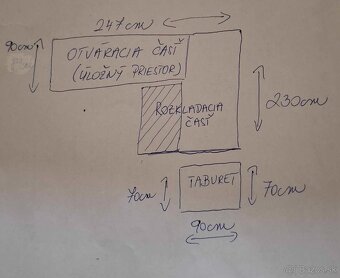 247cm
90cm
OTVÁRACIA ČASŤ
(ÚLOŽNÝ PRIESTOR)
ROZKLADACIA
ČASŤ
230cm
TABURET
70cm
70cm
90cm